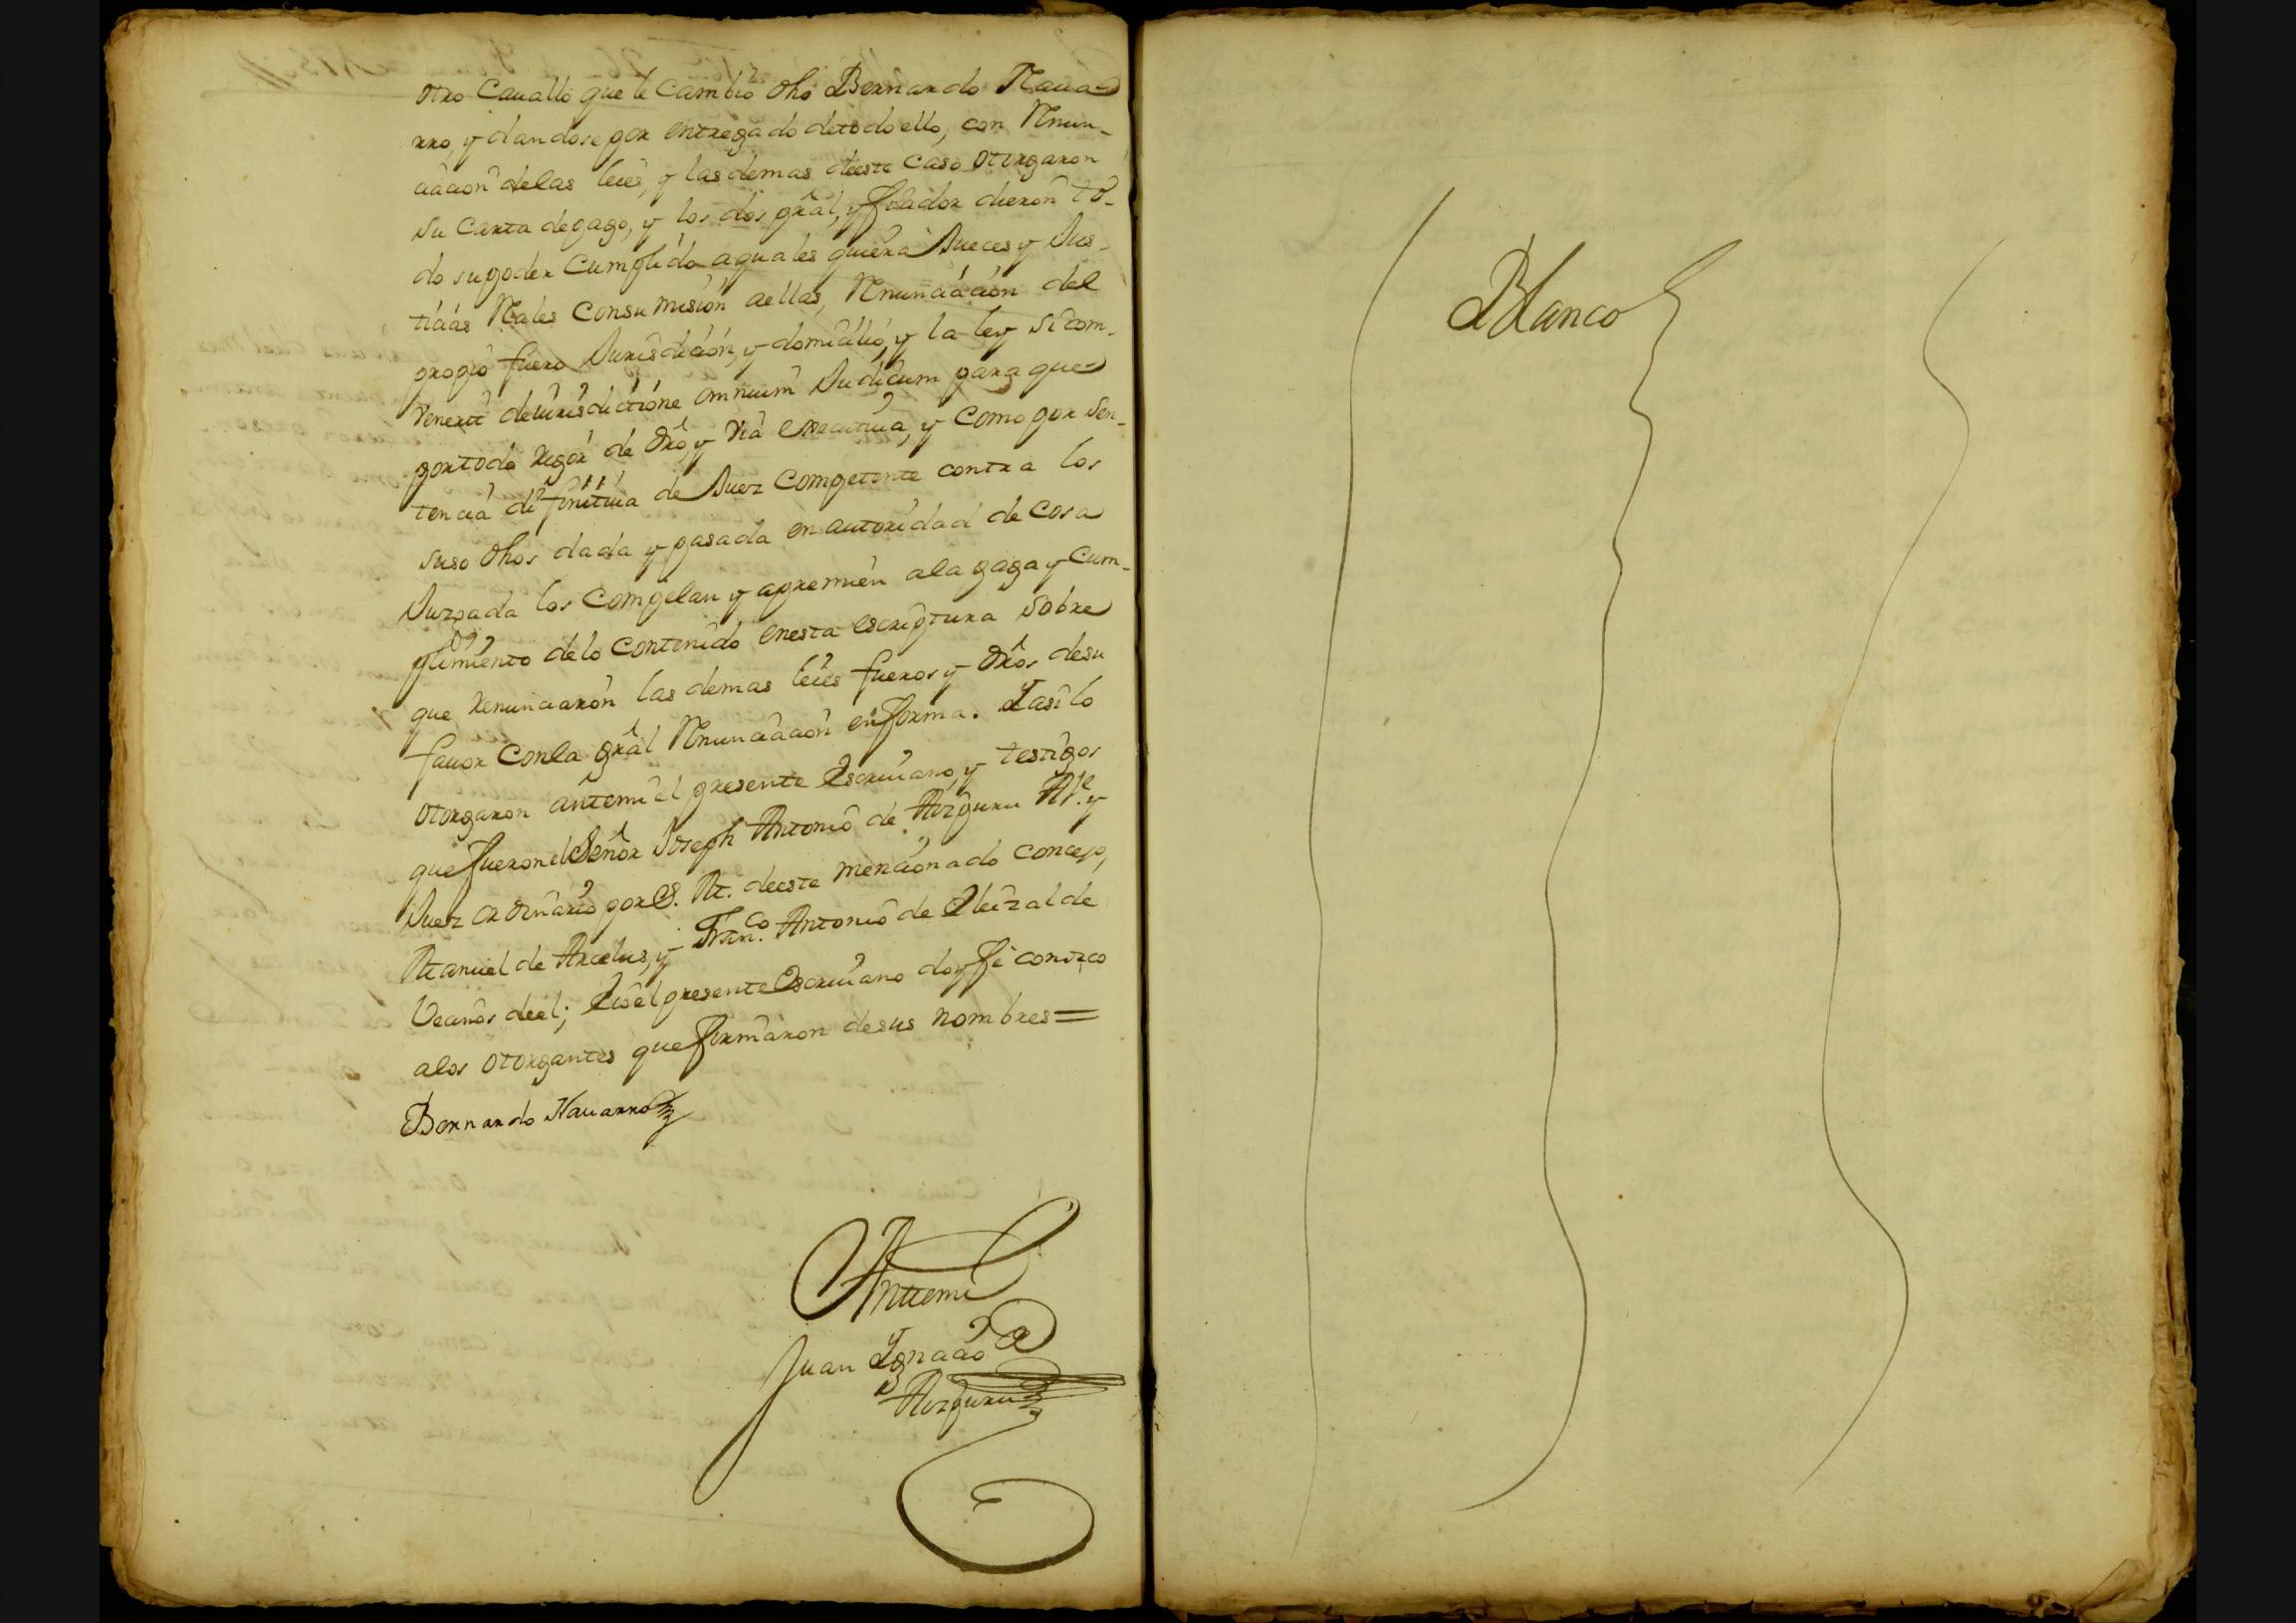 otro Cauallo que le Cambio dho Bernardo Naua-
rro, y dandose por entregado de todo ello, con Rnun-
ciacion de las leies, y las demas deeste caso otorgaron
su Carta de pago, y los dos pral, y fiador dieron to-
do su poder Cumplido a quales quiera Jueces y Jus-
ticias Rales con sumision a ellas, Rnunciacion del
propio fuero Jurisdicion, y domicilio, y la ley si com-
venerit de iurisdictione omnium Judicum para que
por todo rigor de dro, y via executiua, y como por sen-
tencia difinitiua de Juez Competente contra los
suso dhos dada y pasada en autoridad de cosa
Juzgada los Compelan y apremien a la paga y Cum-
plimiento de lo Contenido en esta escriptura sobre
que renunciaron las demas leies fueros y dros de su
fauor con la gral Rnunciacion en forma. Y asi lo
otorgaron ante mi el presente escriuano, y testigos
que fueron el Señor Joseph Antonio de Aizpuru Ale. y
Juez ordinario por S. M. deeste mencionado concejo,
Manuel de Arcelus, y Franco. Antonio de Eleizalde
Vecinos de el; E io el presente Escriuano doy fe conozco
a los otorgantes que firmaron de sus nombres =
Bernardo Nauarro
Ante mi
Juan Ygnacio de
Aizpuru
Blanco